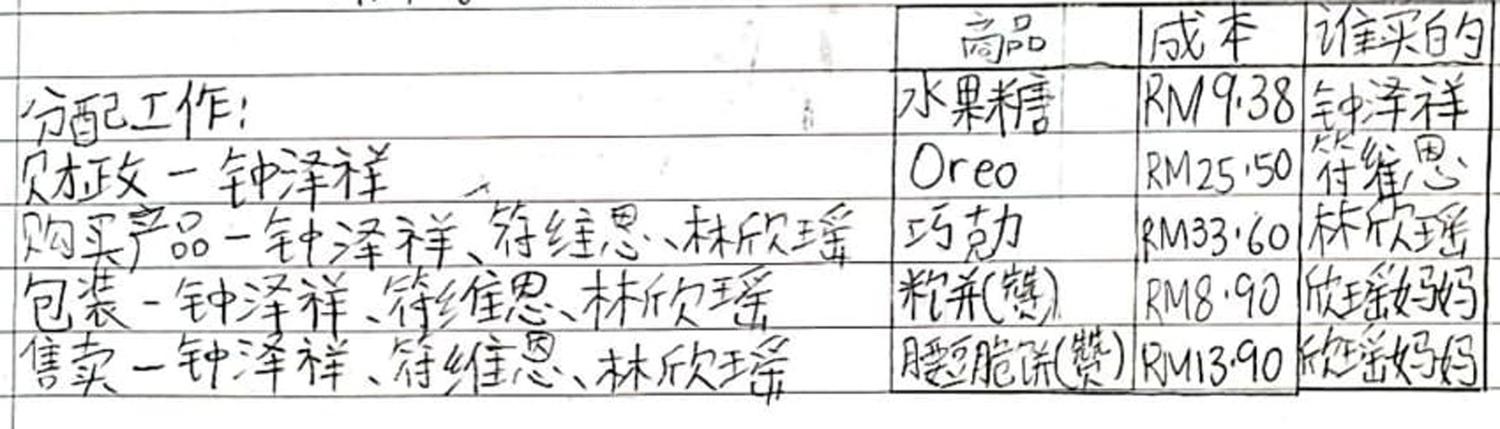 商品 成本 谁买的
分配工作: 水果糖 RM9.38 钟泽祥
财政 - 钟泽祥 Oreo RM25.50 符维恩
购买产品 - 钟泽祥、符维恩、林欣瑶 巧克力 RM33.60 林欣瑶
包装 - 钟泽祥、符维恩、林欣瑶 (赞) RM8.90 欣瑶妈妈
售卖 - 钟泽祥、符维恩、林欣瑶 腰豆脆饼(赞) RM13.90 欣瑶妈妈